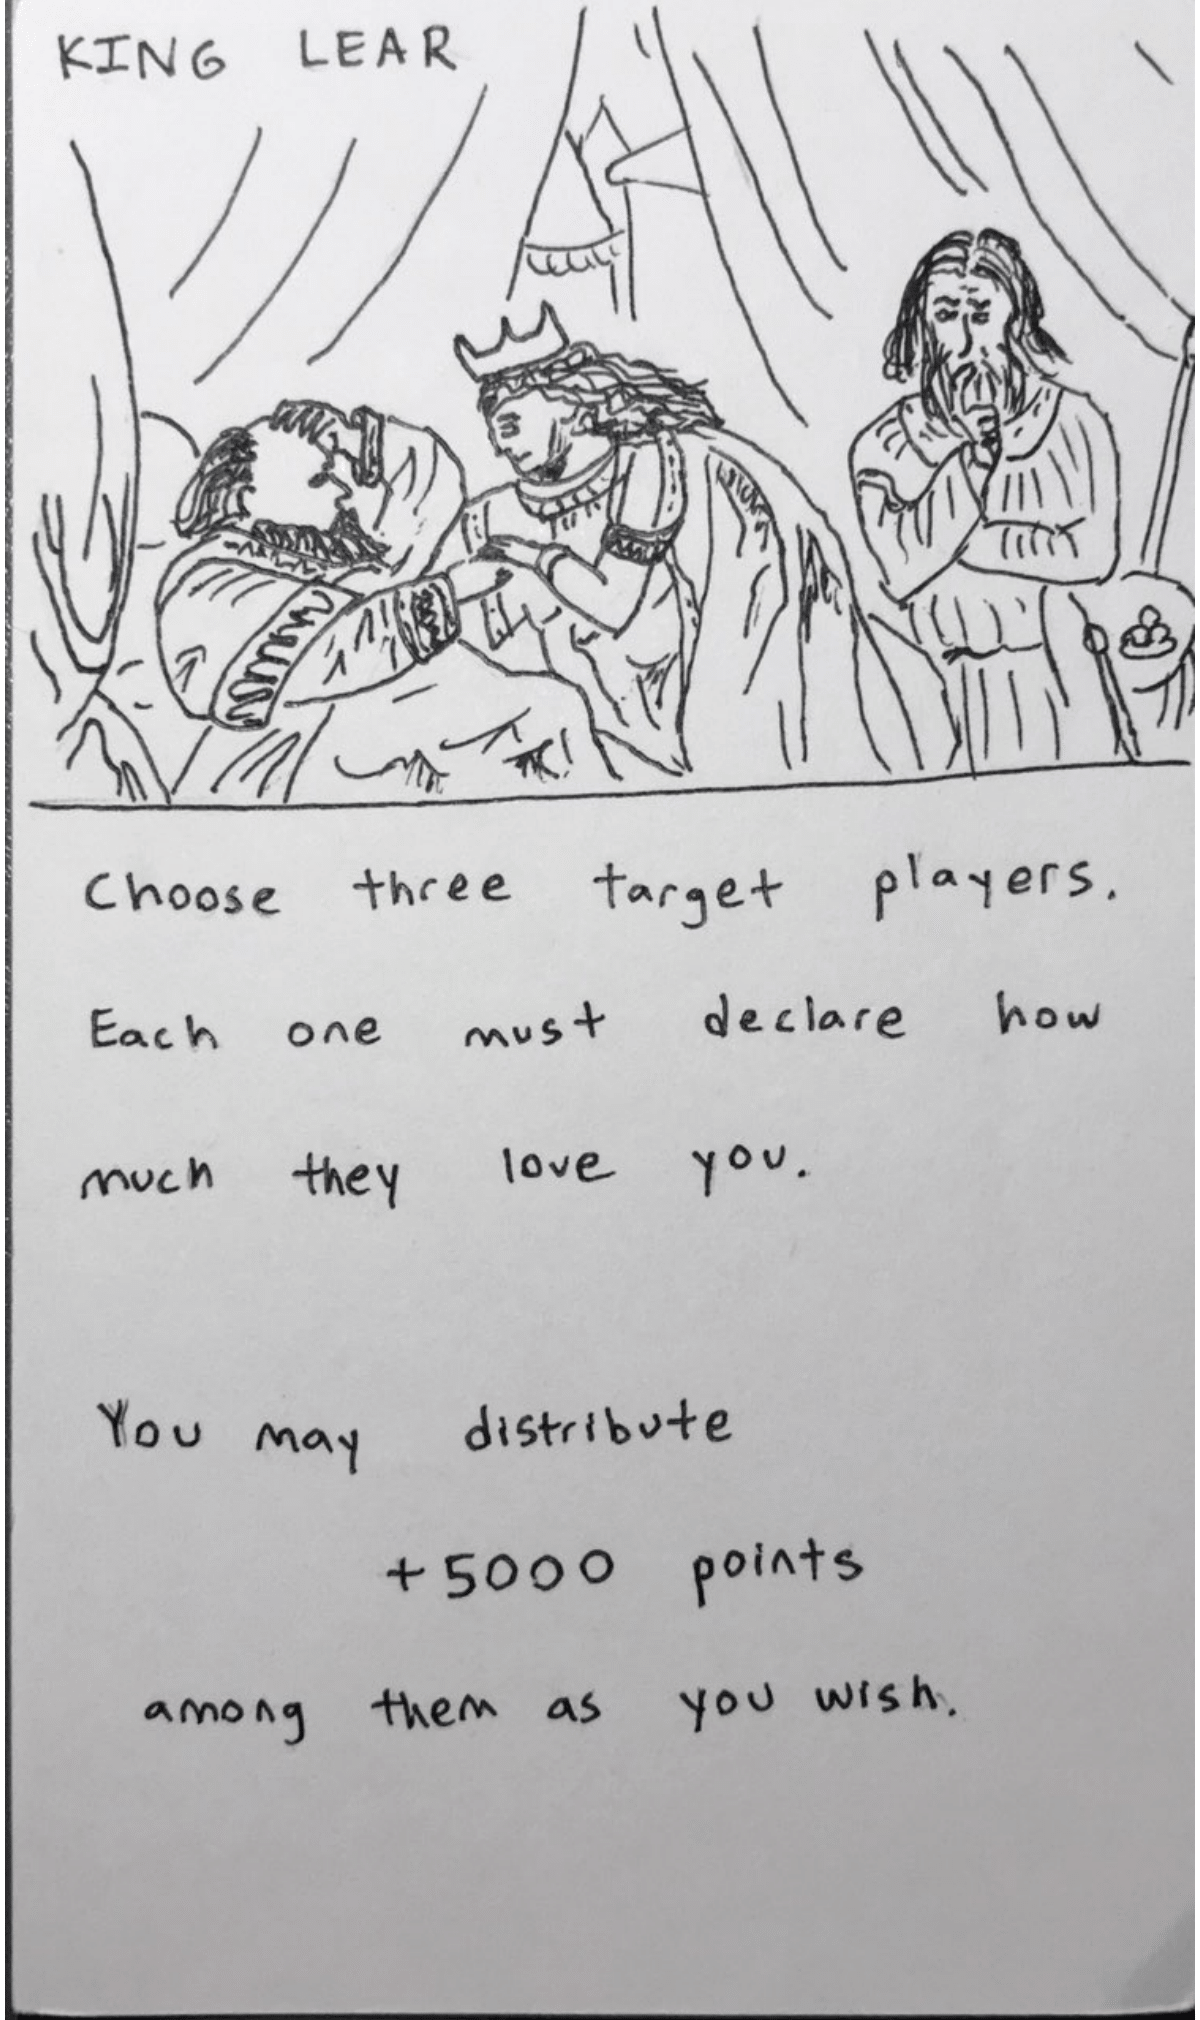 KING LEAR
Choose three target players.
Each one must declare how
much they love you.
You may distribute
+5000 points
among them as you wish.